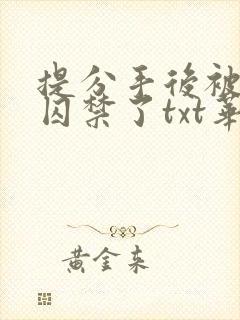 提分手後被
囚禁了txt華
黃金来